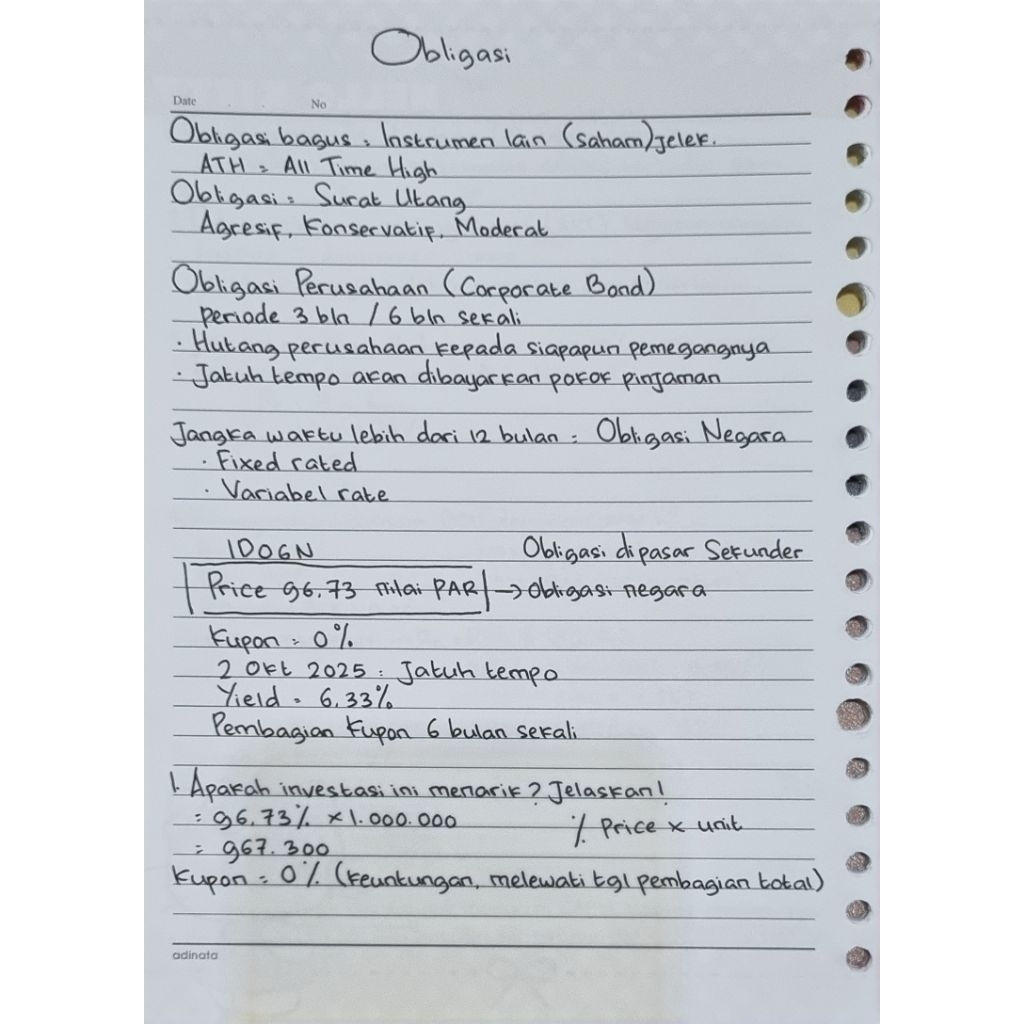 Obligasi
Date . . No
Obligasi bagus = Instrumen lain (saham) jelek.
ATH = All Time High
Obligasi = Surat Utang
Agresif, Konservatif, Moderat
Obligasi Perusahaan (Corporate Bond)
periode 3 bln / 6 bln sekali
· Hutang perusahaan kepada siapapun pemegangnya
· Jatuh tempo akan dibayarkan pokok pinjaman
Jangka waktu lebih dari 12 bulan = Obligasi Negara
· Fixed rated
· Variabel rate
IDOGN Obligasi dipasar Sekunder
Price 96,73 nilai PAR → Obligasi negara
Kupon = 0%
2 Okt 2025 = Jatuh tempo
Yield = 6,33%
Pembagian Kupon 6 bulan sekali
1. Apakah investasi ini menarik? Jelaskan!
= 96,73% × 1.000.000 % Price × unit
= 967.300
Kupon = 0% (keuntungan, melewati tgl pembagian total)
adinata